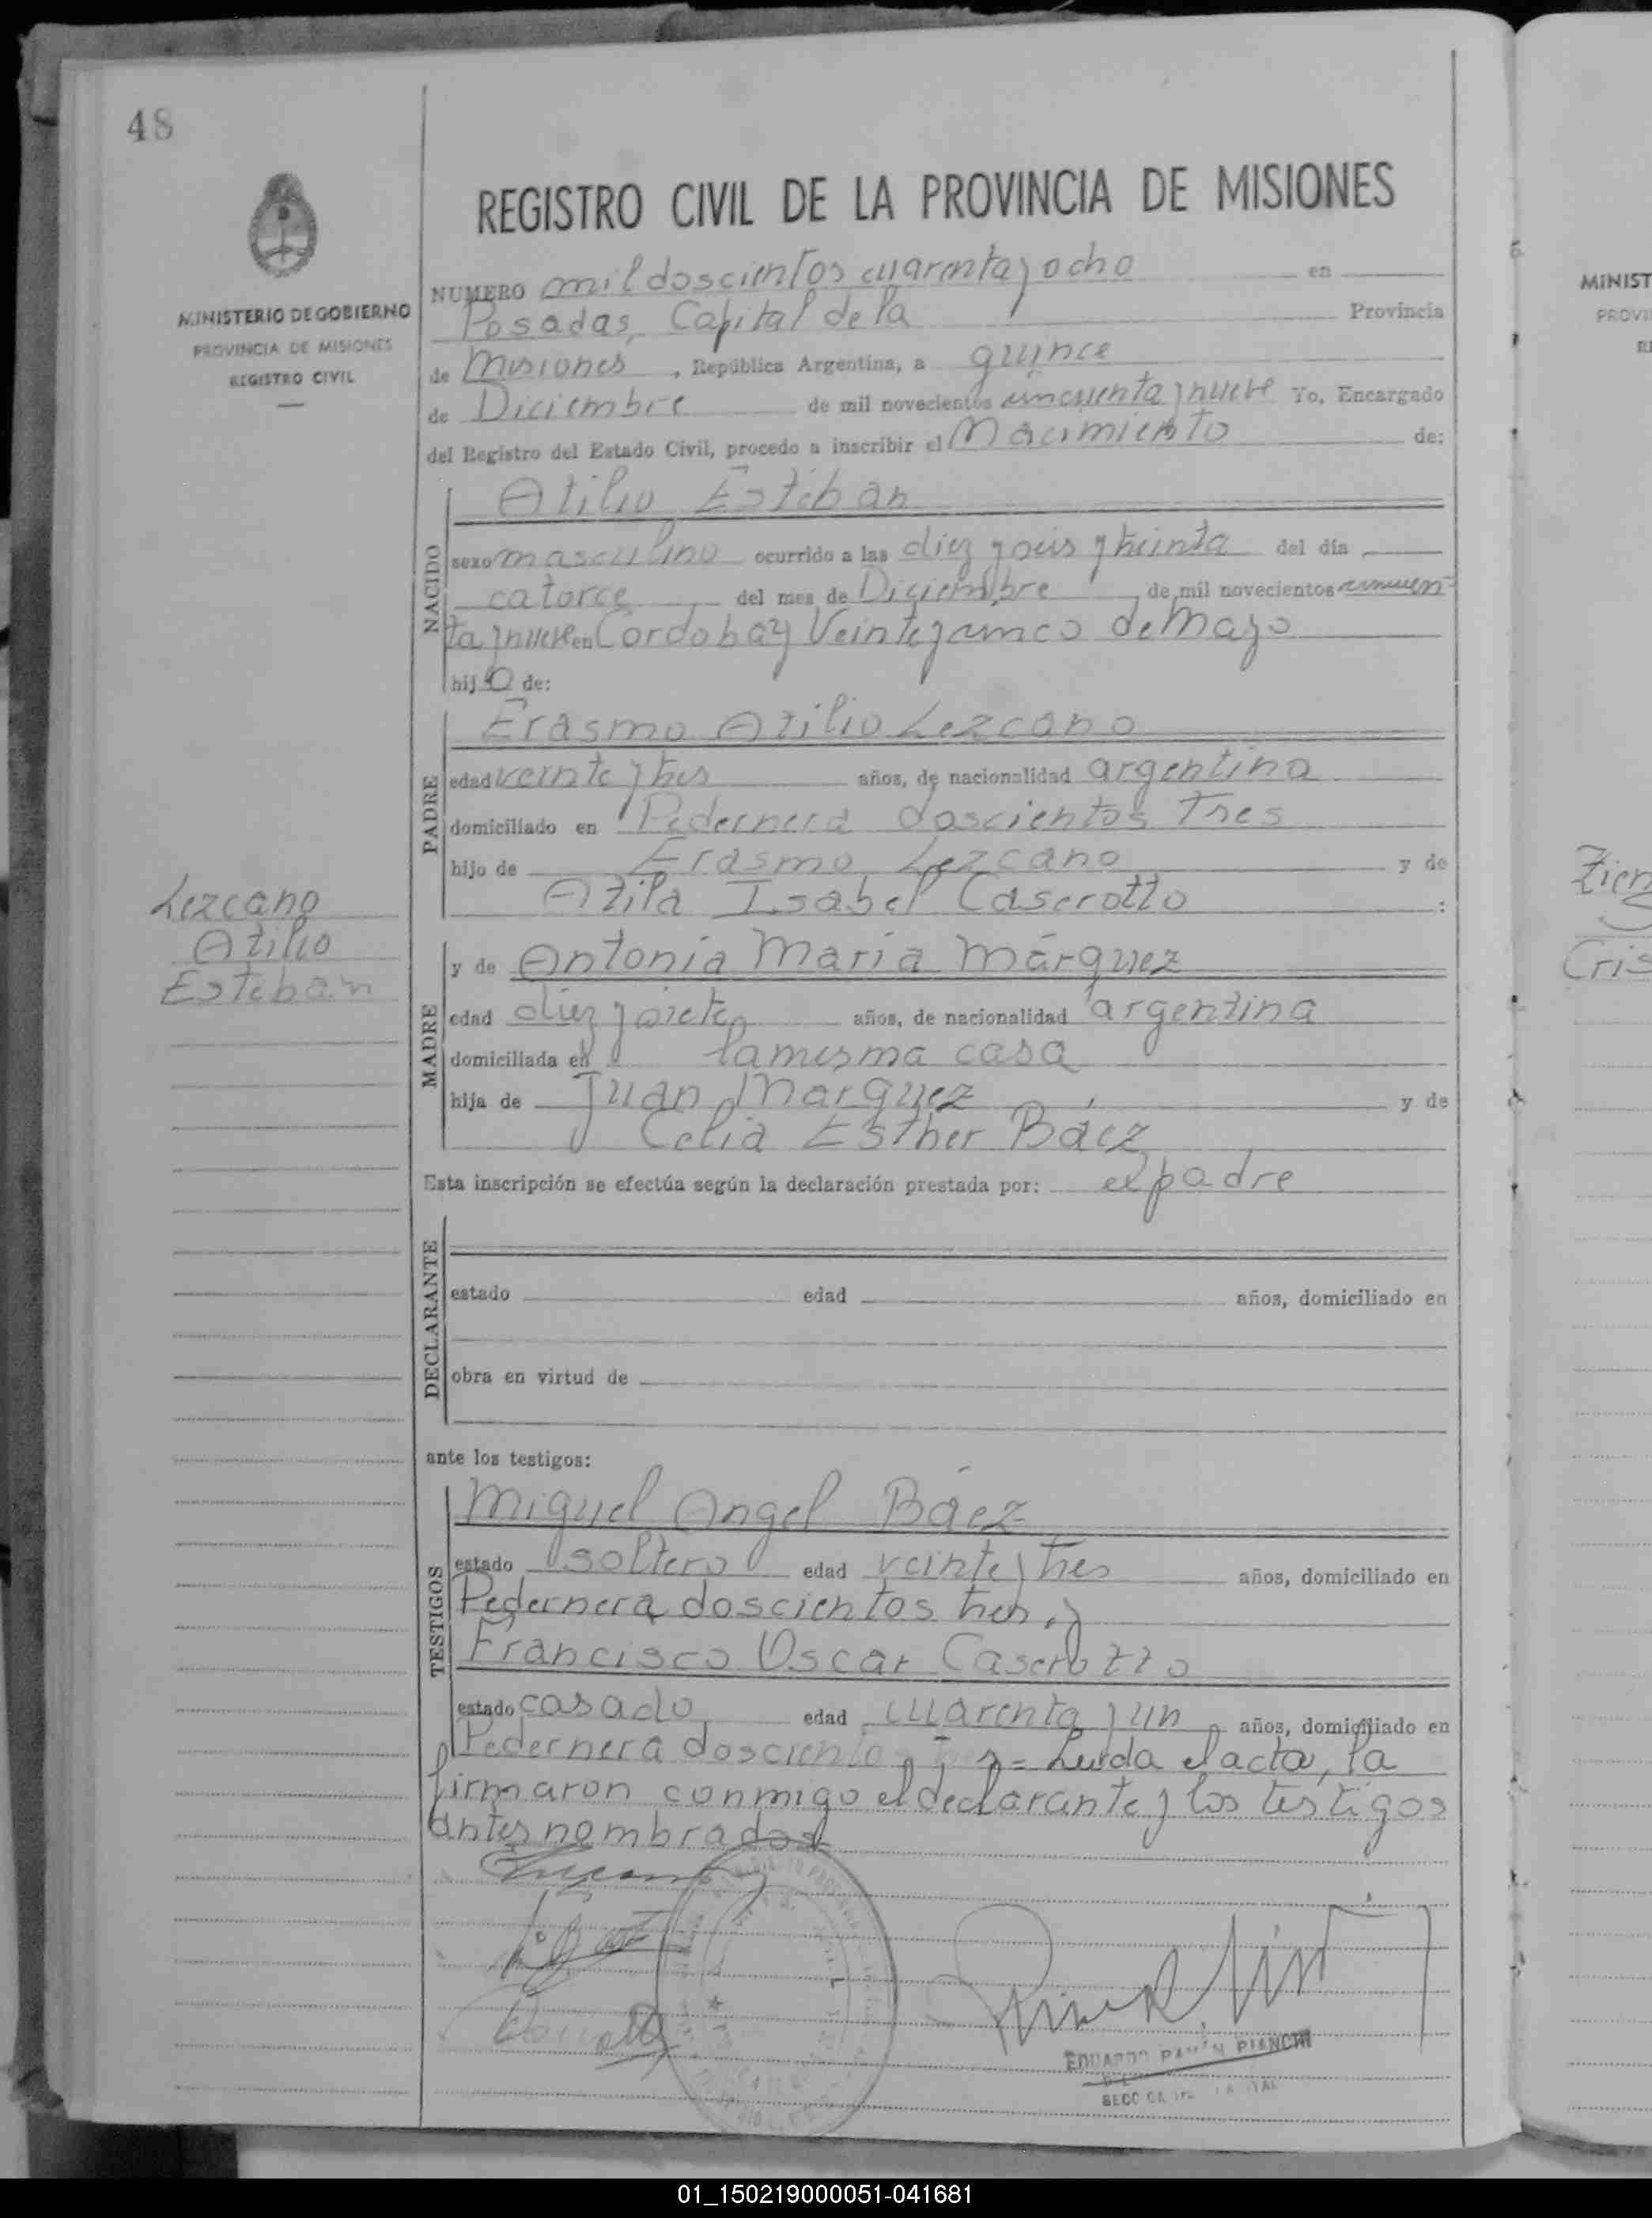 48
MINISTERIO DE GOBIERNO
PROVINCIA DE MISIONES
REGISTRO CIVIL
REGISTRO CIVIL DE LA PROVINCIA DE MISIONES
NUMERO mil doscientos cuarenta y ocho en
Posadas, Capital de la Provincia
de Misiones, República Argentina, a quince
de Diciembre de mil novecientos cincuenta y nueve Yo, Encargado
del Registro del Estado Civil, procedo a inscribir el Nacimiento de:
NACIDO
Atilio Esteban
sexo masculino ocurrido a las diez y seis y treinta del día
catorce del mes de Diciembre de mil novecientos cincuen
ta y nueve en Cordoba y Veinte y cinco de Mayo
hijo de:
PADRE
Erasmo Atilio Lezcano
edad veinte y tres años, de nacionalidad argentina
domiciliado en Pedernera doscientos tres
hijo de Erasmo Lezcano y de
Atila Isabel Caserotto :
Lezcano
Atilio
Esteban
MADRE
y de Antonia María Márquez
edad diez y siete años, de nacionalidad argentina
domiciliada en la misma casa
hija de Juan Marquez y de
Celia Esther Báez
Esta inscripción se efectúa según la declaración prestada por: el padre
DECLARANTE
estado edad años, domiciliado en
obra en virtud de
ante los testigos:
TESTIGOS
Miguel Angel Báez
estado soltero edad veinte y tres años, domiciliado en
Pedernera doscientos tres, y
Francisco Oscar Caserotto
estado casado edad cuarenta y un años, domiciliado en
Pedernera doscientos = Leida el acta, la
firmaron conmigo el declarante y los testigos
antes nombrados
EDUARDO RAMÓN PIANCHI
MINIST
PROVI
Cris
01_150219000051-041681